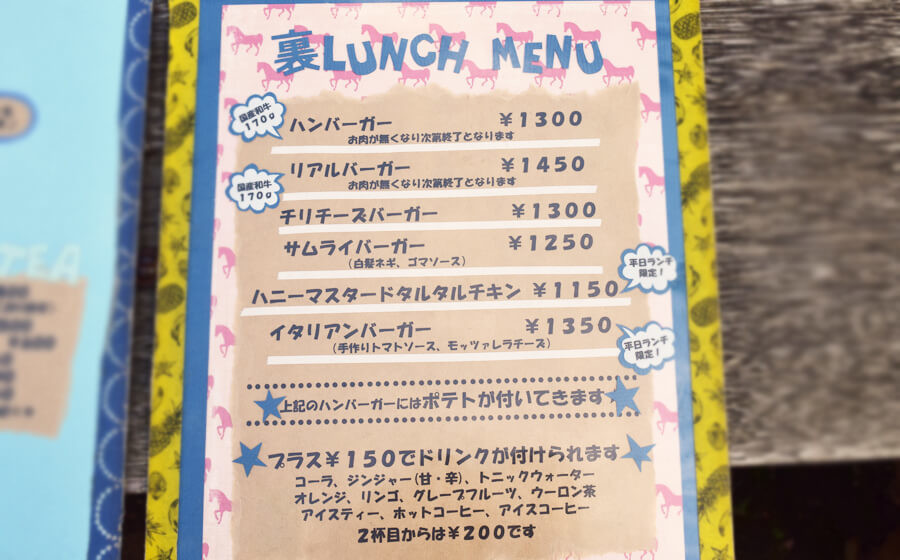 裏LUNCH MENU
国産和牛
170g
ハンバーガー ¥1300
お肉が無くなり次第終了となります
国産和牛
170g
リアルバーガー ¥1450
お肉が無くなり次第終了となります
チリチーズバーガー ¥1300
サムライバーガー ¥1250
(白髪ネギ、ゴマソース)
平日ランチ
限定!
ハニーマスタードタルタルチキン ¥1150
イタリアンバーガー ¥1350
(手作りトマトソース、モッツァレラチーズ)
平日ランチ
限定!
上記のハンバーガーにはポテトが付いてきます
プラス¥150でドリンクが付けられます
コーラ、ジンジャー(甘・辛)、トニックウォーター
オレンジ、リンゴ、グレープフルーツ、ウーロン茶
アイスティー、ホットコーヒー、アイスコーヒー
2杯目からは¥200です
TEA